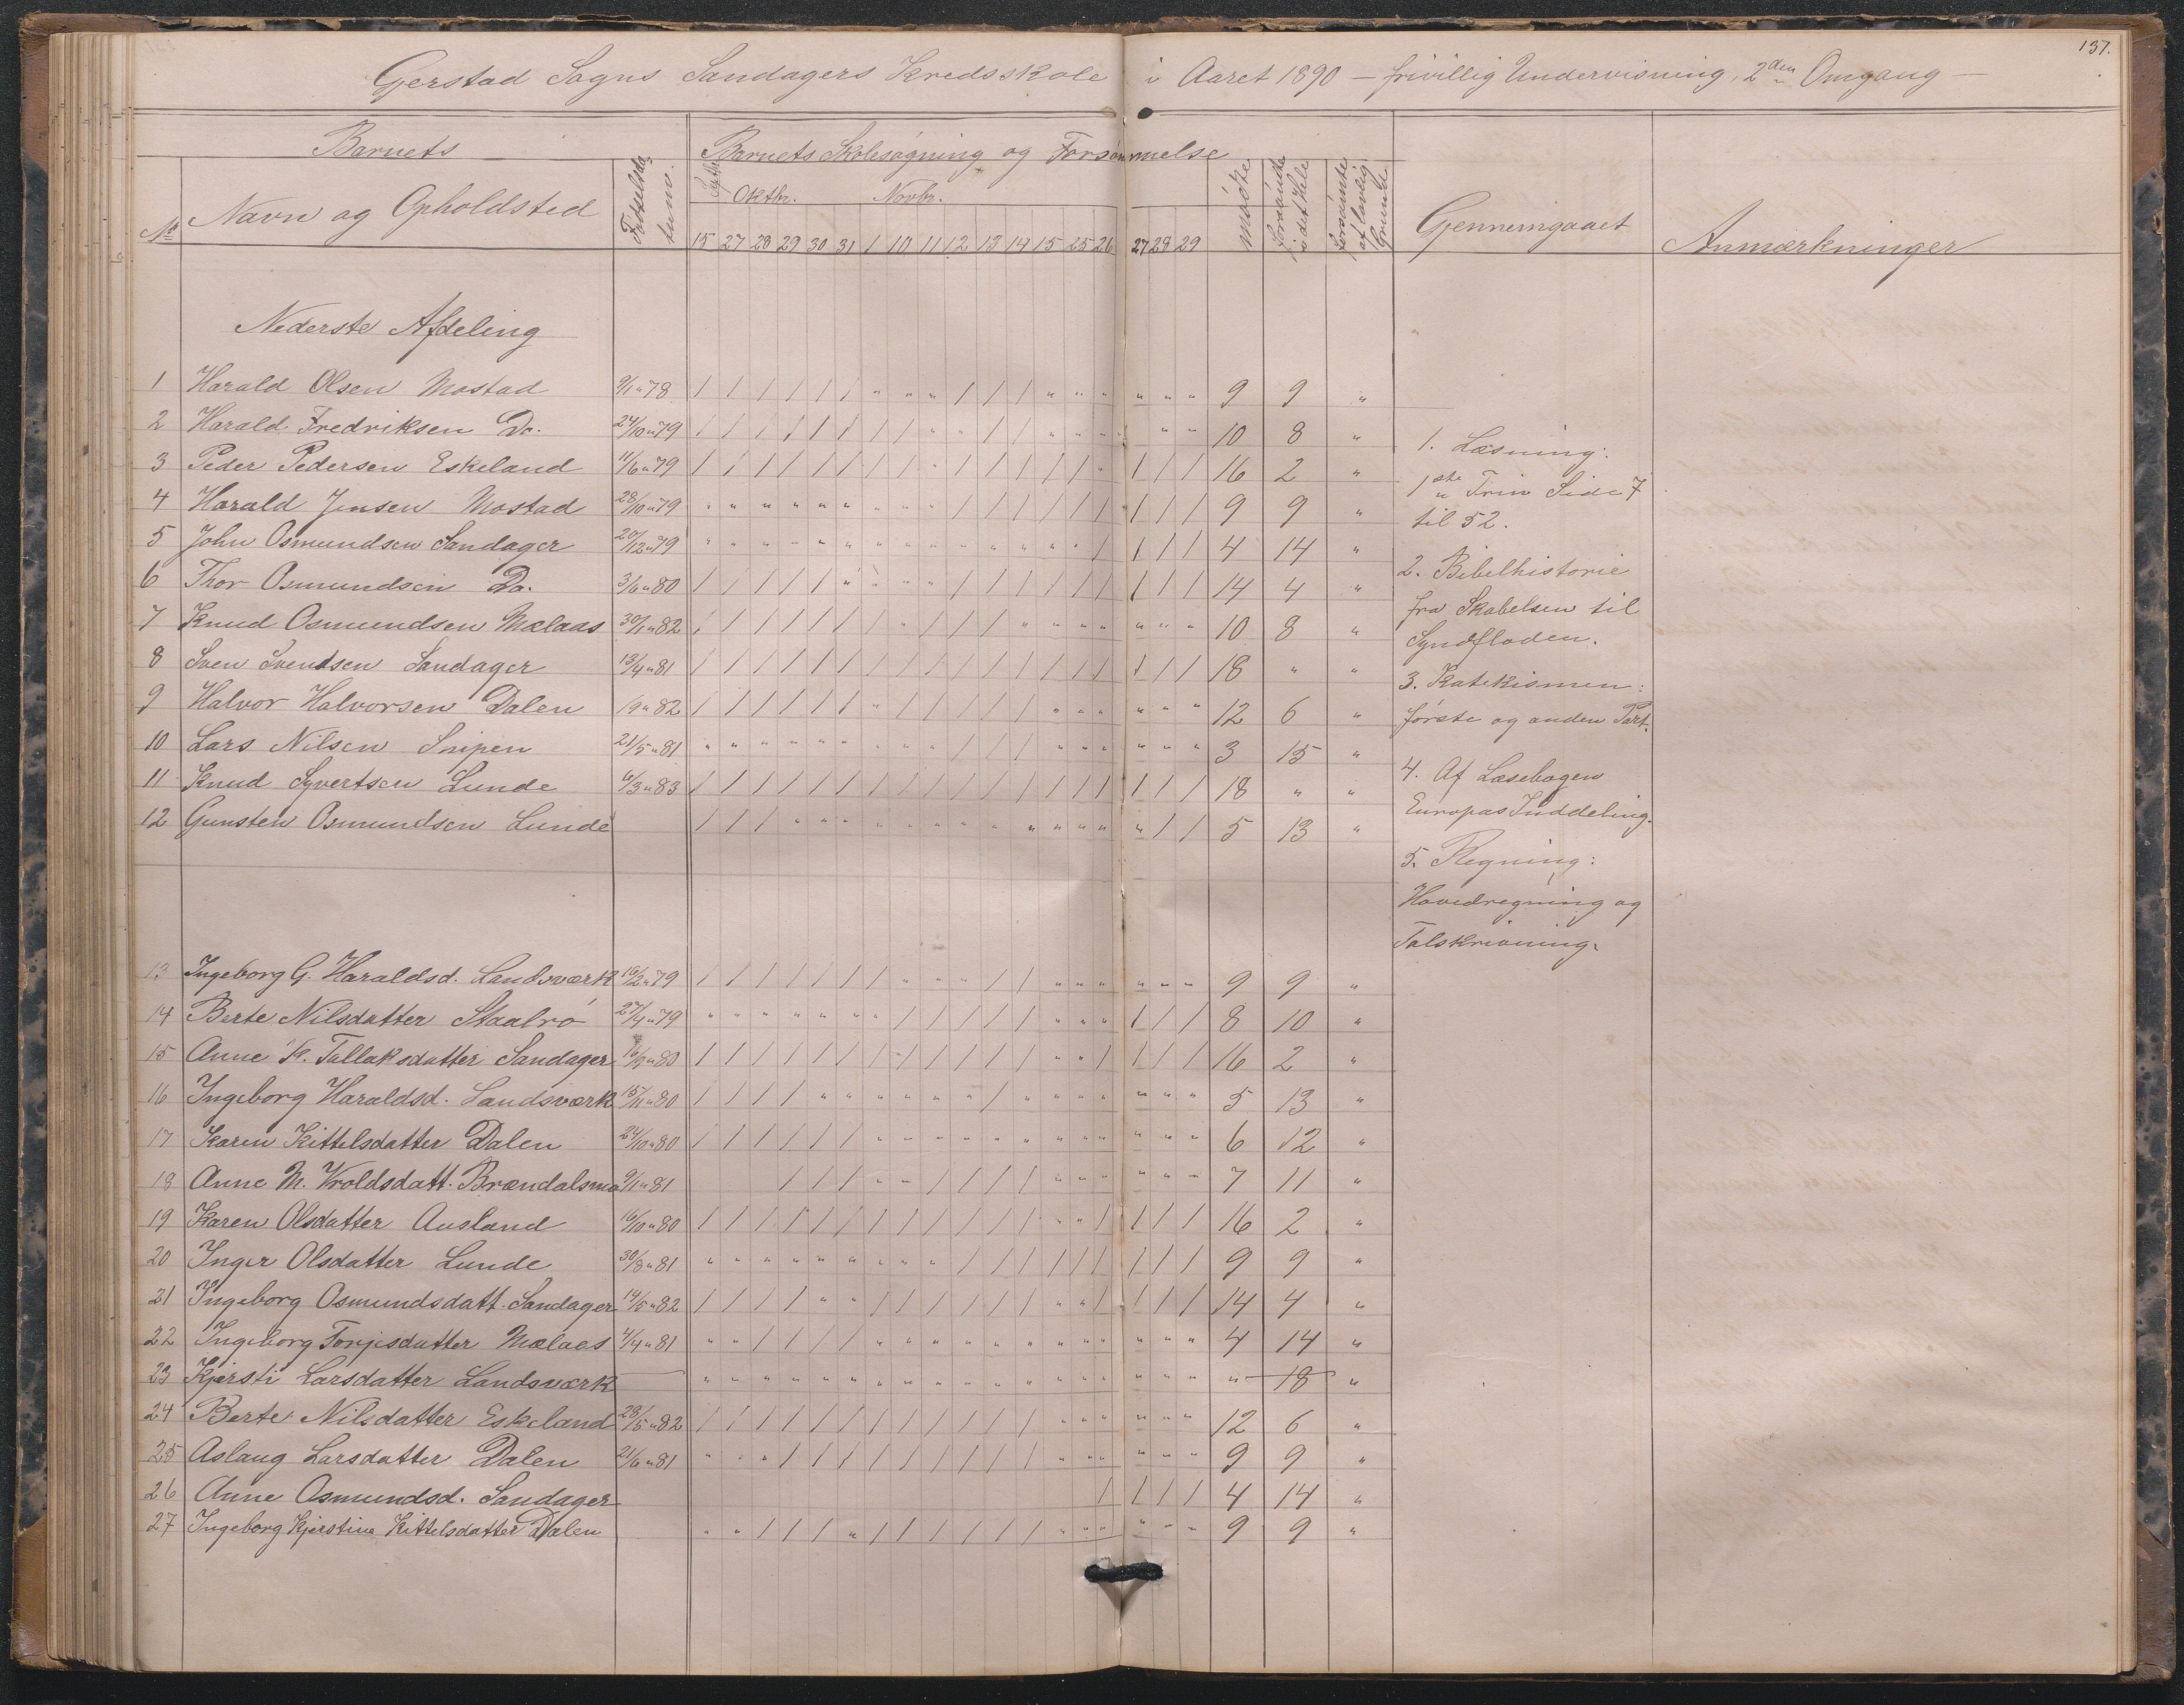 137.
Gerstad Sogns Sandagers Kredsskole i Aaret 1890 — frivillig Undervisning, 2den Omgang —
Barnets
Barnets Skolesøgning og Forsømmelse
No Navn og Opholdsted
Fødselsda-
tum.
Septbr. Oktbr. Novbr.
15 27 28 29 30 31 1 10 11 12 13 14 15 25 26 27 28 29
mødte
forsømte i det Hele
forsømte af lovlig Grunde
Gjennemgaaet
Anmærkninger
Nederste Afdeling
1 Harald Olsen Mostad 9/1 " 78 / / / / / / " " " / / / " " " " " " 9 9 "
2 Harald Fredriksen Do. 24/10 " 79 / / / / / / / / " " / / " " " " " " 10 8 "
3 Peder Pedersen Eskeland 11/6 " 79 / / / / / / / / " / / / / / " / / / 16 2 "
4 Harald Jensen Mostad 28/10 " 79 " " " " " " " " " / / / / / / / / / 9 9 "
5 John Osmundsen Sandager 20/12 " 79 " " " " " " " " " " " " " " / / / / 4 14 "
6 Thor Osmundsen Do. 3/6 " 80 / / / / / " " " " / / / / / / / / / 14 4 "
7 Knud Osmundsen Mælaas 30/1 " 82 / / / / / / / " / / / " " " " " " " 10 8 "
8 Sven Svendsen Sandager 13/4 " 81 / / / / / / / / / / / / / / / / / / 18 " "
9 Halvor Halvorsen Dalen 19 " 82 / / / / / / " / / / / / " " " " " " 12 6 "
10 Lars Nilsen Snipen 21/5 " 81 " " " " " " " " " / / / " " " " " " 3 15 "
11 Knud Syvertsen Lunde 6/3 " 83 / / / / / / / / / / / / / / / / / / 18 " "
12 Gunsten Osmundsen Lunde / / / " " " " " " " " " " " " " / / 5 13 "
13 Ingeborg G. Haraldsd. Landsværk 16/2 " 79 / / / / / / / " " " / / " " " " " " 9 9 "
14 Berte Nilsdatter Staalrø 27/4 " 79 " " " " " " " / / / / / " " " / / / 8 10 "
15 Anne K. Tallaksdatter Sandager 16/9 " 80 / / / / / / / / / / / / " " / / / / 16 2 "
16 Ingeborg Haraldsd. Landsværk 15/11 " 80 / / / / " " " " " " / " " " " " " " 5 13 "
17 Karen Kittelsdatter Dalen 24/10 " 80 / / / / / / " " " " " " " " " " " " 6 12 "
18 Anne M. Vroldsdatt. Brændalsmo 9/1 " 81 / / / " " / / / / " " " " " " 7 11 "
19 Karen Olsdatter Ausland 16/10 " 80 / / / / / / / / / / / / " " / / / / 16 2 "
20 Inger Olsdatter Lunde 30/8 " 81 " " " " " " " " " / / / / / / / / / 9 9 "
21 Ingeborg Osmundsdatt. Sandager 14/5 " 82 / / / / " " / / / / / / " " / / / / 14 4 "
22 Ingeborg Torjesdatter Mælaas 4/4 " 81 " " / / / / " " " " " " " " " " " " 4 14 "
23 Kjersti Larsdatter Landsværk — " " " " " " " " " " " " " " " " " " " 18 "
24 Berte Nilsdatter Eskeland 28/5 " 82 / / / / / / / / / / / / " " " " " " 12 6 "
25 Aslaug Larsdatter Dalen 21/6 " 81 " " " / / / / / / / / / " " " " " " 9 9 "
26 Anne Osmundsd. Sandager / / / / 4 14 "
27 Ingeborg Kjerstine Kittelsdatter Dalen " " / / / " / / / / / / " " " " " " 9 9 "
1. Læsning:
1ste Trin Side 7
til 52.
2. Bibelhistorie
fra Skabelsen til
Syndfloden.
3. Katekismen:
første og anden Part.
4. Af Læsebogen
Europas Inddeling.
5. Regning:
Hovedregning og
Talskrivning.